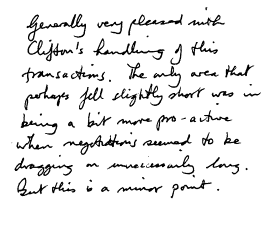 Generally very pleased with
Clifton's handling of this
transactions. The only area that
perhaps fell slightly short was in
being a bit more pro-active
when negotiations seemed to be
dragging on unnecessarily long.
But this is a minor point.